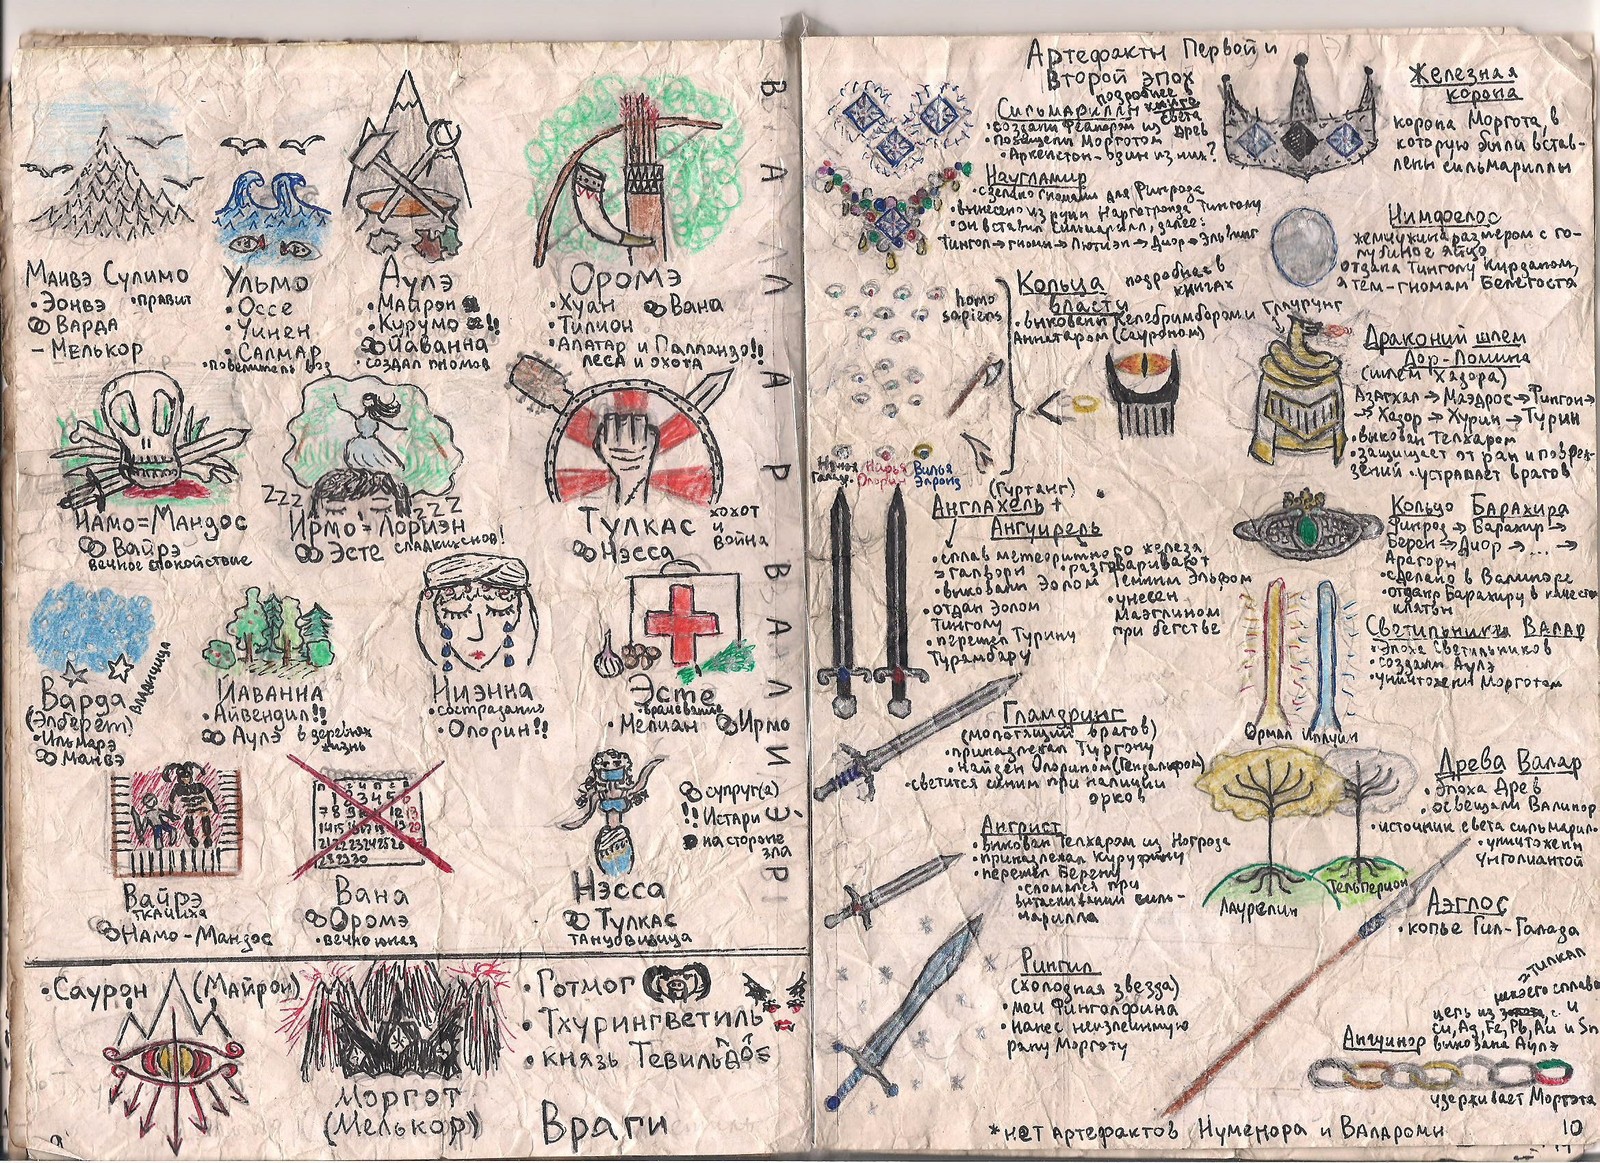 ВАЛАР И ВАЛИЭР
Манвэ Сулимо
• Эонвэ • правит
Варда
– Мелькор
Ульмо
• Оссе
• Уинен
• Салмар
• повелитель вод
Аулэ
• Майрон
• Курумо !!
Йаванна
• создал гномов
Оромэ
• Хуан Вана
• Тилион
• Алатар и Палландо!!
леса и охота
Намо = Мандос
Вайрэ
вечное спокойствие
zzz zzz
Ирмо = Лориэн
Эсте сладких снов!
Тулкас
Нэсса
хохот
и
война
Варда
(Элберет)
• Ильмарэ
Манвэ
владычица
Йаванна
• Айвендил!!
Аулэ в деревьях
жизнь
Ниэнна
• сострадание
• Олорин!!
Эсте
• врачевание
• Мелиан Ирмо
Вайрэ
ткачиха
Намо-Мандос
Вана
Оромэ
• вечно юная
Нэсса
Тулкас
танцовщица
супруг(а)
!! Истари
на стороне
зла
• Саурон (Майрон)
Моргот
(Мелькор)
• Готмог
• Тхурингветиль
• князь Тевильдо
Враги
9
Артефакты Первой и
Второй эпох
подробнее в
книге
Сильмариллы
• создал Феанорэм из света
Древ
• похищены Морготом
• Аркенстон – один из них?
Наугламир
• сделано гномами для Финрода
• вынесено из руин Нарготронда Тинголу
• он вставил сильмарилл, далее:
Тингол → гномы → Лютиэн → Диор → Эльвинг
Кольца
власти
подробнее в
книгах
• выкованы Келебримбором и
Аннатаром (Сауроном)
homo
sapiens
Нарья
Олорин
Вилья
Элронд
(Гуртанг)
Англахель +
Ангуирель
• сплав метеоритного железа
→ галворн • разговаривают
• выкованы Эолом Тёмным Эльфом
• отдан Эолом
Тинголу
• перешел Турину
Турамбару
• унесен
Маэглином
при бегстве
Гламдринг
(молотящий врагов)
• принадлежал Тургону
• найден Олорином (Гендальфом)
• светится синим при наличии
орков
Ангрист
• выкован Телхаром из Ногрода
• принадлежал Куруфину
• перешел Берену
• сломался при
вытаскивании силь-
марилла
Рингил
(холодная звезда)
• меч Финголфина
• нанес неизлечимую
рану Морготу
Железная
корона
корона Моргота, в
которую были встав-
лены сильмариллы
Нимфелос
жемчужина размером с го-
лубиное яйцо
отдана Тинголу Кирданом,
а тем – гномам Белегоста
Глаурунг
Драконий шлем
Дор-Ломина
(шлем Хадора)
Азагхал → Маэдрос → Фингон →
→ Хадор → Хурин → Турин
• выкован Телхаром
• защищает от ран и повреж-
дений • устрашает врагов
Кольцо Барахира
Финрод → Барахир →
Берен → Диор → ... →
Арагорн
• сделано в Валиноре
• отдано Барахиру в качестве
клятвы
Светильники Валар
• Эпоха Светильников
• создали Аулэ
• уничтожены Морготом
Ормал Иллуин
Древа Валар
• Эпоха Древ
• освещали Валинор
• источник света сильмарил.
• уничтожены
Унголиантой
Лаурелин
Тельперион
Аэглос
• копье Гил-Галада
Ангайнор
цепь из
Cu, Ag, Fe, Pb, Au и Sn
выкована Аулэ
удерживает Моргота
* нет артефактов Нуменора и Валароми
10